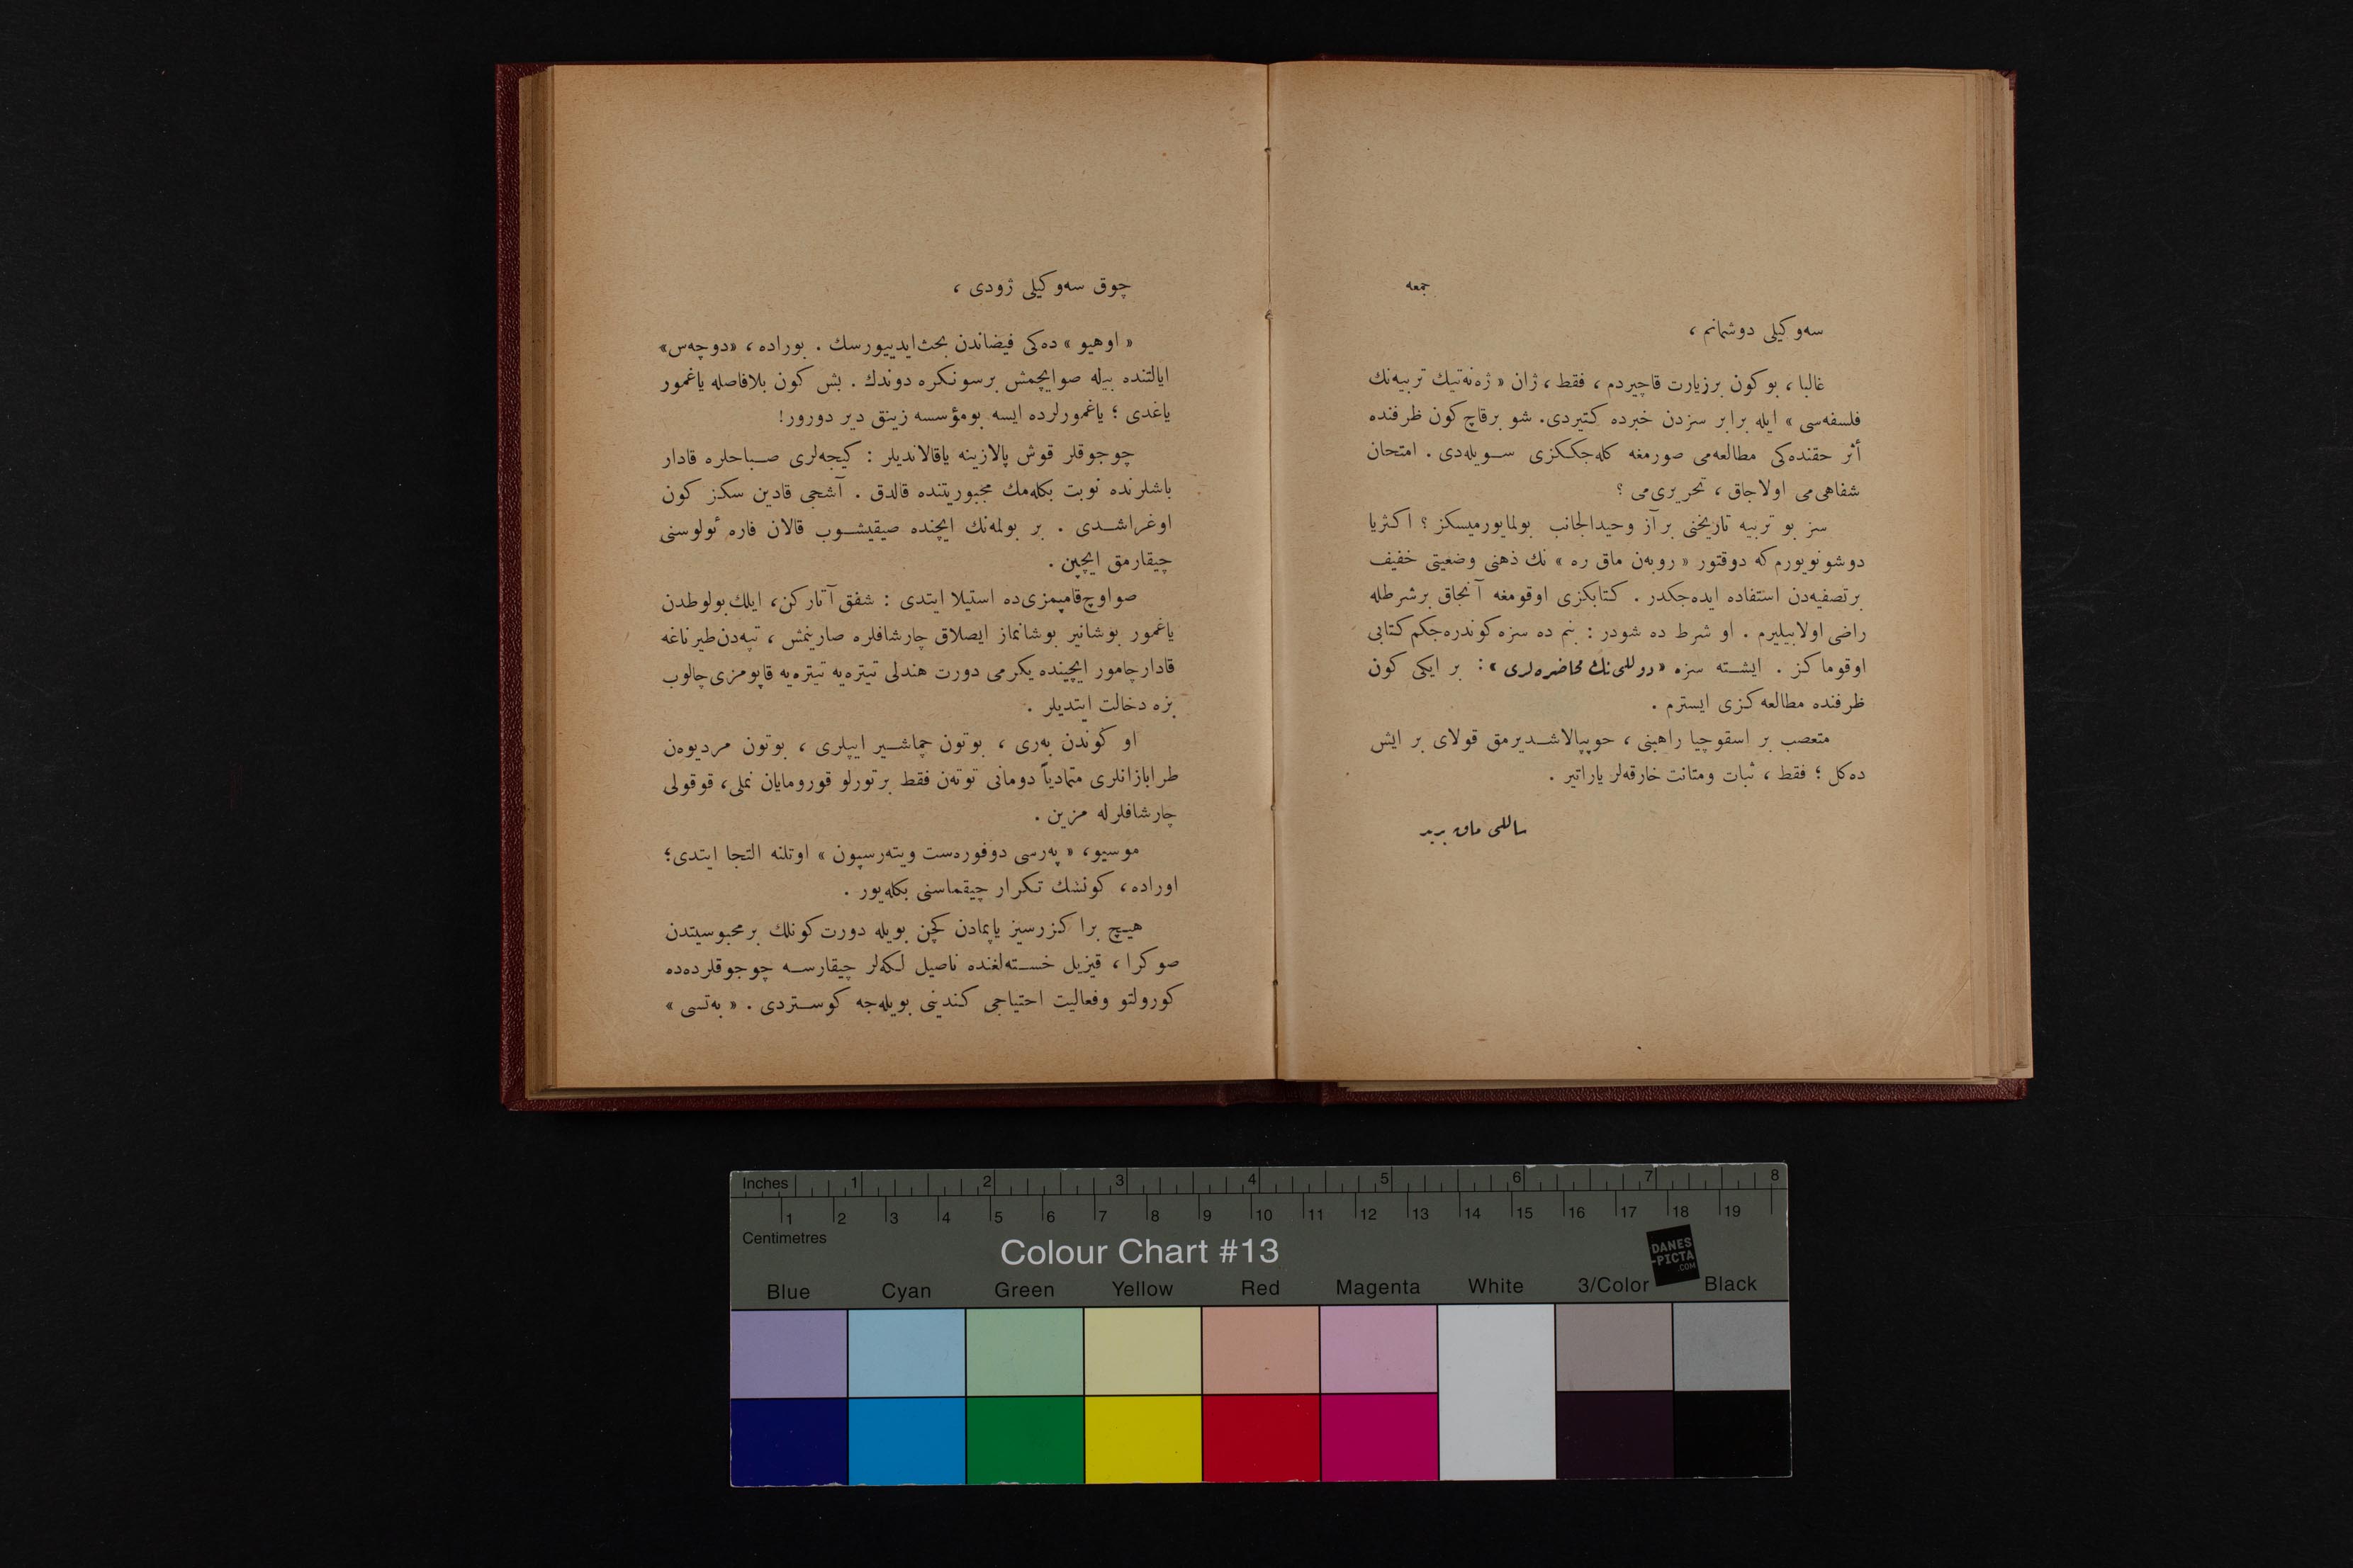 جمعه
سەوكیلی دوشمانم ،
غالبا ، بوكون برزیارت قاچیردم ، فقط ، ژان « ژەنەتیك تربیەنك
فلسفەسی » ایلە برابر سزدن خبردە كتیردی. شو برقاچ كون ظرفندە
أثر حقندەكی مطالعەمی صورمغە كلەجككزی سویلەدی . امتحان
شفاهی‌می اولاجاق ، تحریری‌می ؟
سز بو تربیە تاریخنی برآز وحیدالجانب بولمایورمیسكز ؟ اكثریا
دوشونویورم كە دوقتور « روبەن ماق رە » نك ذهنی وضعیتی خفیف
برتصفیەدن استفادە ایدەجكدر . كتابكزی اوقومغە آنجاق برشرطلە
راضی اولابیلیرم . او شرط دە شودر : بنم دە سزە كوندرەجكم كتابی
اوقوماكز . ایشتە سزە «دوللی‌نك محاضرەلری » : بر ایكی كون
ظرفندە مطالعەكزی ایسترم .
متعصب بر اسقوچیا راهبنی ، حوپپالاشدیرمق قولای بر ایش
دەكل ؛ فقط ، ثبات ومتانت خارقەلر یاراتیر .
ساللی ماق برید
چوق سەوكیلی ژودی ،
« اوهیو » دەكی فیضاندن بحث‌ایدییورسك . بورادە ، «دوچەس»
ایالتندە بیلە صوایچمش برسونكرە دوندك . بش كون بلافاصلە یاغمور
یاغدی ؛ یاغمورلردە ایسە بومؤسسە زینق دیر دورور!
چوجوقلر قوش پالازینە یاقالاندیلر : كیجەلری صباحلرە قادار
باشلرندە نوبت بكلەمك مجبوریتندە قالدق . آشجی قادین سكز كون
اوغراشدی . بر بولمەنك ایچندە صیقیشوب قالان فارە ئولوسنی
چیقارمق ایچین .
صواوچ‌قامپمزی‌دە استیلا ایتدی : شفق آتاركن، ایلك‌بولوطدن
یاغمور بوشانیر بوشانماز ایصلاق چارشافلرە صارینمش ، تپەدن‌طیرناغە
قادارچامور ایچیندە یكرمی دورت هندلی تیترەیە تیترەیە قاپومزی چالوب
بزە دخالت ایتدیلر .
او كوندن بەری ، بوتون چماشیر ایپلری ، بوتون مردیوەن
طرابازانلری متمادیاً دومانی توتەن فقط برتورلو قورومایان نملی، قوقولی
چارشافلرلە مزین .
موسیو، « پەرسی دوفورەست ویتەرسپون » اوتلنە التجا ایتدی؛
اورادە، كونشك تكرار چیقماسنی بكلەیور .
هیچ برا كزرسیز یاپمادن كچن بویلە دورت كونلك برمحبوسیتدن
صوكرا ، قیزیل خستەلغندە ناصیل لكەلر چیقارسە چوجوقلردەدە
كورولتو وفعالیت احتیاجی كندینی بویلەجە كوستردی . « بەتسی »
Inches 1 2 3 4 5 6 7 8
1 2 3 4 5 6 7 8 9 10 11 12 13 14 15 16 17 18 19
Centimetres
Colour Chart #13
DANES
-PICTA
.COM
Blue Cyan Green Yellow Red Magenta White 3/Color Black